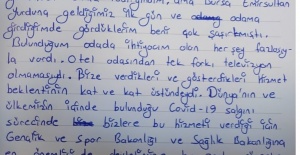 ama Bursa Emirsultan
Yurduna geldiğimiz ilk gün ve odama
girdiğimde gördüklerim beni çok şaşırtmıştı.
Bulunduğum odada ihtiyacım olan her şey fazlasıy-
la vardı. Otel odasından tek farkı televizyon
olmamasıydı. Bize verdikleri ve gösterdikleri hizmet
beklentinin kat ve kat üstündeydi. Dünya'nın ve
ülkemizin içinde bulunduğu Covid-19 salgını
sürecinde bizlere bu hizmeti verdiği için
Gençlik ve Spor Bakanlığı ve Sağlık Bakanlığına